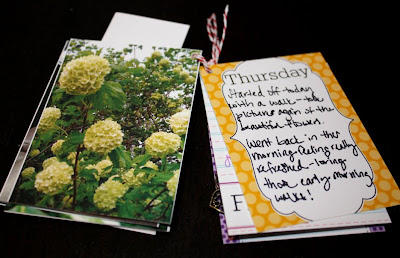 Thursday
Started off today
with a walk - took
pictures again of the
beautiful flowers.
Went back in this
morning feeling really
refreshed - loving
those early morning
walks!
F